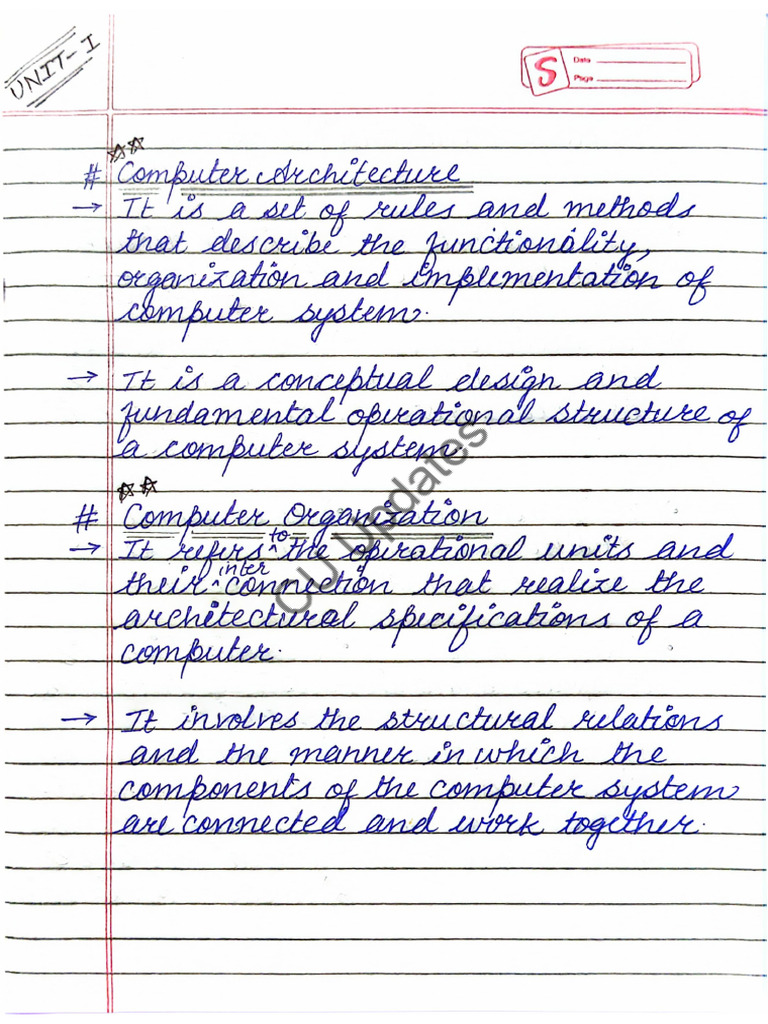 UNIT-I
S
Date
Page
☆☆
# Computer Architecture
→ It is a set of rules and methods
that describe the functionality,
organization and implementation of
computer system.
→ It is a conceptual design and
fundamental operational structure of
a computer system.
☆☆
# Computer Organization
→ It refers to the operational units and
their interconnection that realize the
architectural specifications of a
computer.
→ It involves the structural relations
and the manner in which the
components of the computer system
are connected and work together.
CU Updates